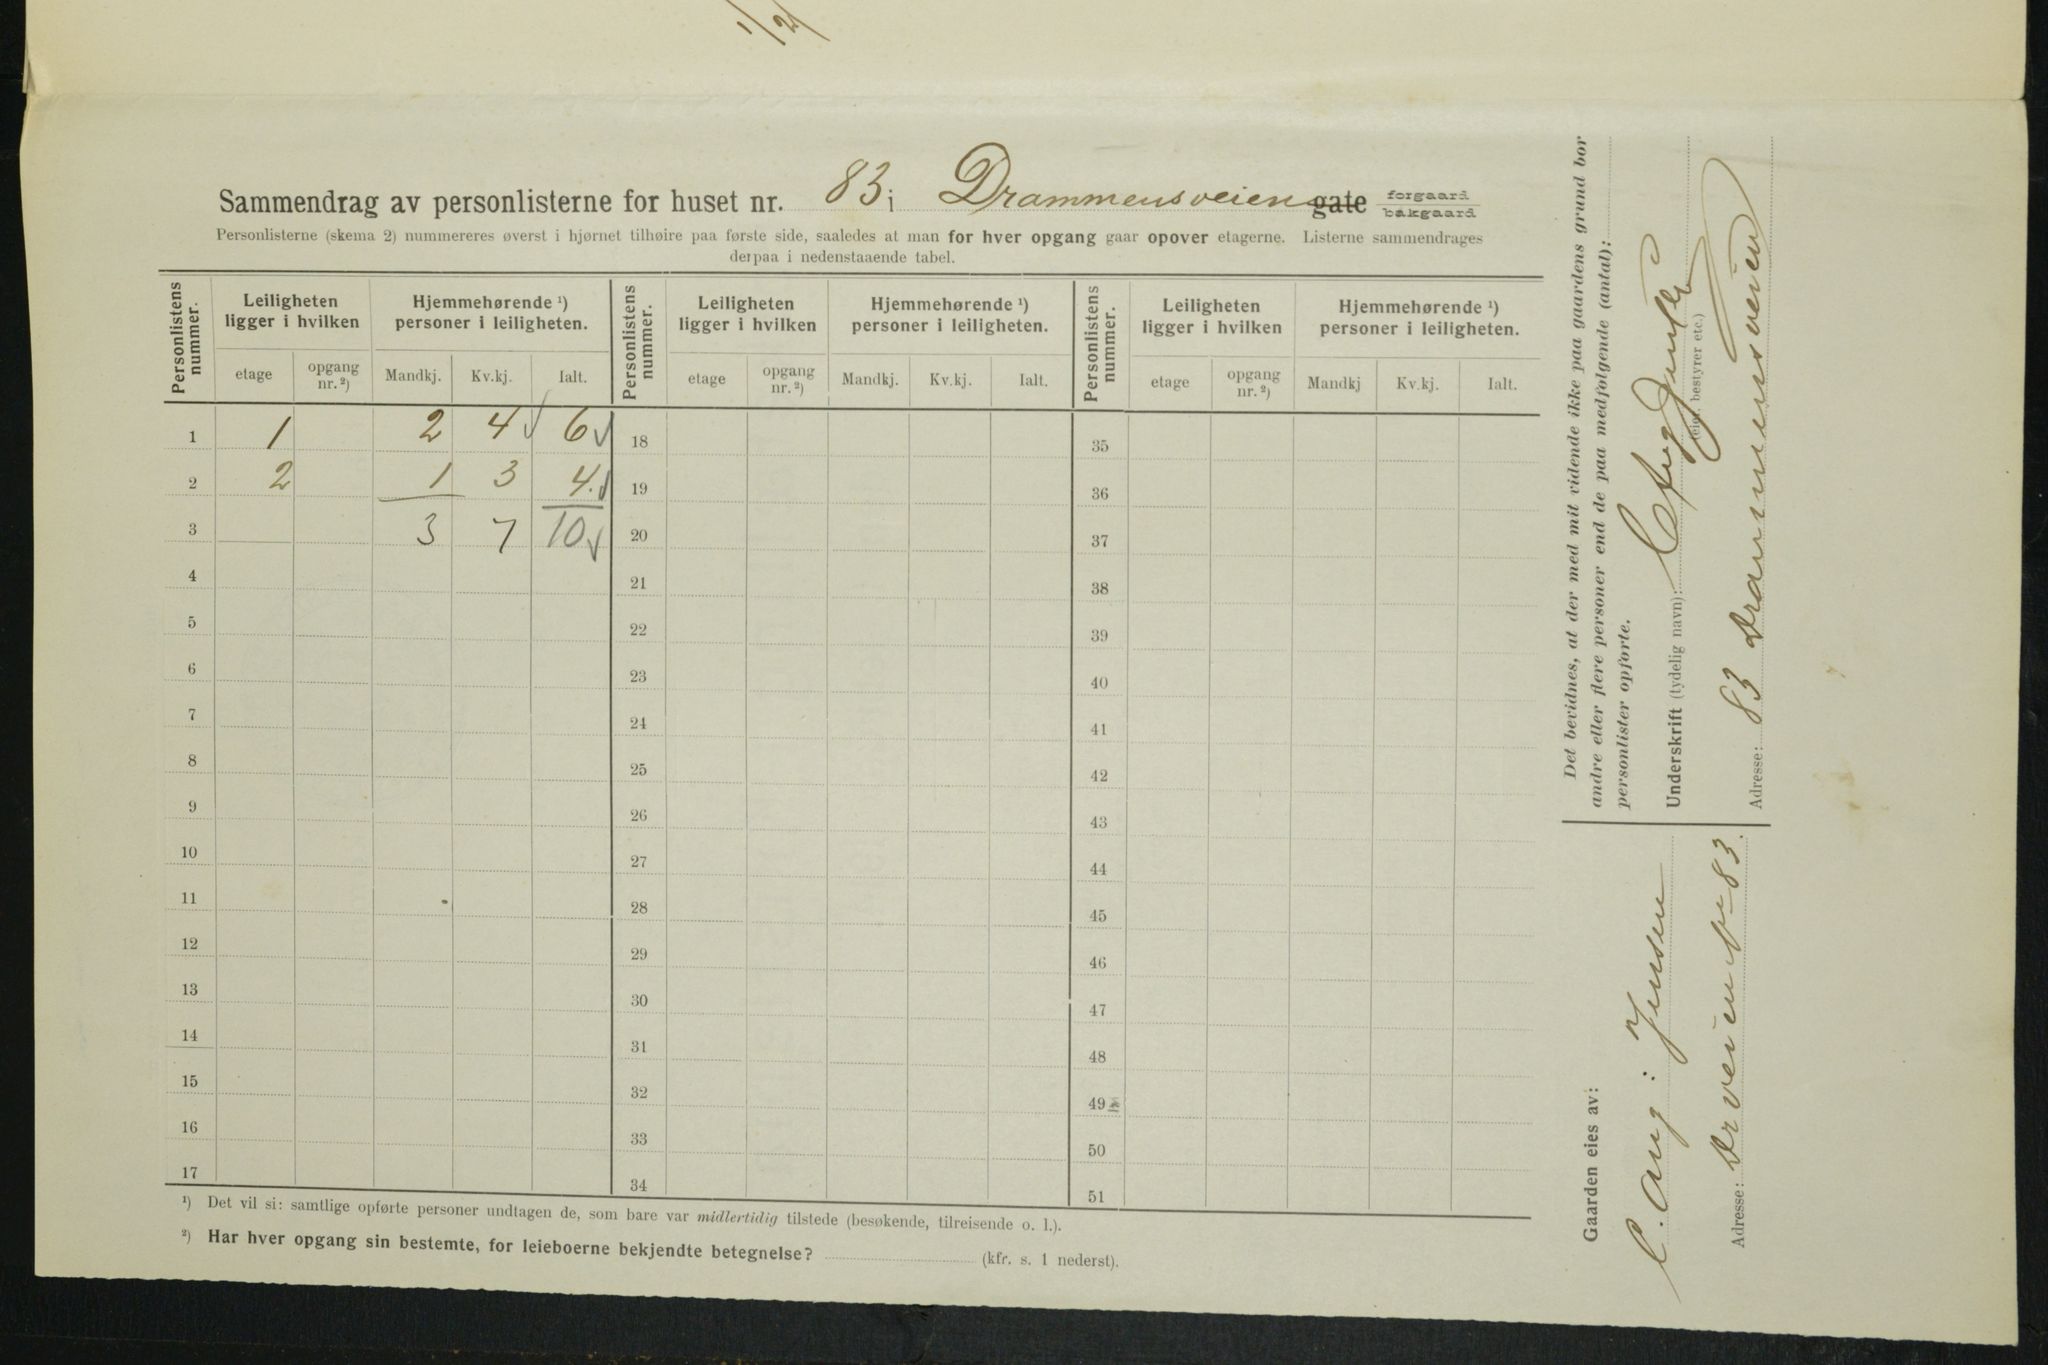 1/2
Sammendrag av personlisterne for huset nr. 83 i Drammensveien gate forgaard bakgaard
Personlisterne (skema 2) nummereres øverst i hjørnet tilhøire paa første side, saaledes at man for hver opgang gaar opover etagerne. Listerne sammendrages
derpaa i nedenstaaende tabel.
Personlistens nummer. Leiligheten ligger i hvilken Hjemmehørende ¹) personer i leiligheten. Personlistens nummer. Leiligheten ligger i hvilken Hjemmehørende ¹) personer i leiligheten. Personlistens nummer. Leiligheten ligger i hvilken Hjemmehørende ¹) personer i leiligheten.
etage opgang nr. ²) Mandkj. Kv.kj. Ialt. etage opgang nr. ²) Mandkj. Kv.kj. Ialt. etage opgang nr. ²) Mandkj Kv.kj. Ialt.
1 1 2 4 6 18 35
2 2 1 3 4. 19 36
3 3 7 10 20 37
4 21 38
5 22 39
6 23 40
7 24 41
8 25 42
9 26 43
10 27 44
11 28 45
12 29 46
13 30 47
14 31 48
15 32 49
16 33 50
17 34 51
¹) Det vil si: samtlige opførte personer undtagen de, som bare var midlertidig tilstede (besøkende, tilreisende o. l.).
²) Har hver opgang sin bestemte, for leieboerne bekjendte betegnelse? (kfr. s. 1 nederst).
Det bevidnes, at der med mit vidende ikke paa gaardens grund bor
andre eller flere personer end de paa medfølgende (antal):
personlister opførte.
Underskrift (tydelig navn): C Aug Jensen
(eier, bestyrer etc.)
Adresse: 83 Drammensveien
Gaarden eies av:
C. Aug: Jensen
Adresse: Drveien No 83.